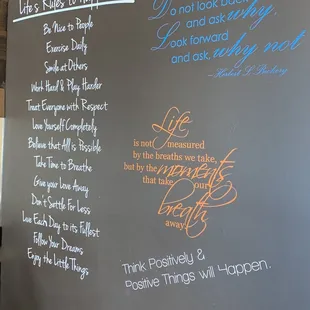 Life's Rules to
Be Nice to People
Exercise Daily
Smile at Others
Work Hard & Play Harder
Treat Everyone with Respect
Love Yourself Completely
Believe that All is Possible
Take Time to Breathe
Give your Love Away
Don't Settle For Less
Live Each Day to its Fullest
Follow Your Dreams
Enjoy the Little Things
Do not look back
and ask, why.
Look forward
and ask, why not
Life
is not measured
by the breaths we take,
but by the moments
that take our
breath
away.
Think Positively &
Positive Things will Happen.